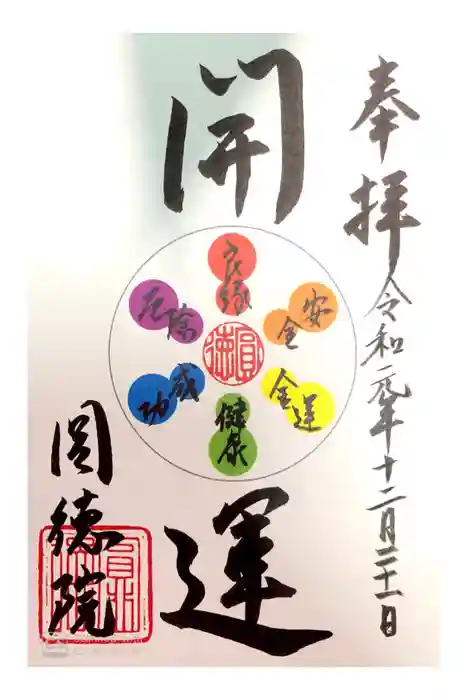 奉拝
令和元年十二月二十一日
開運
良縁
安全
金運
健康
成功
厄除
圓徳
圓徳院